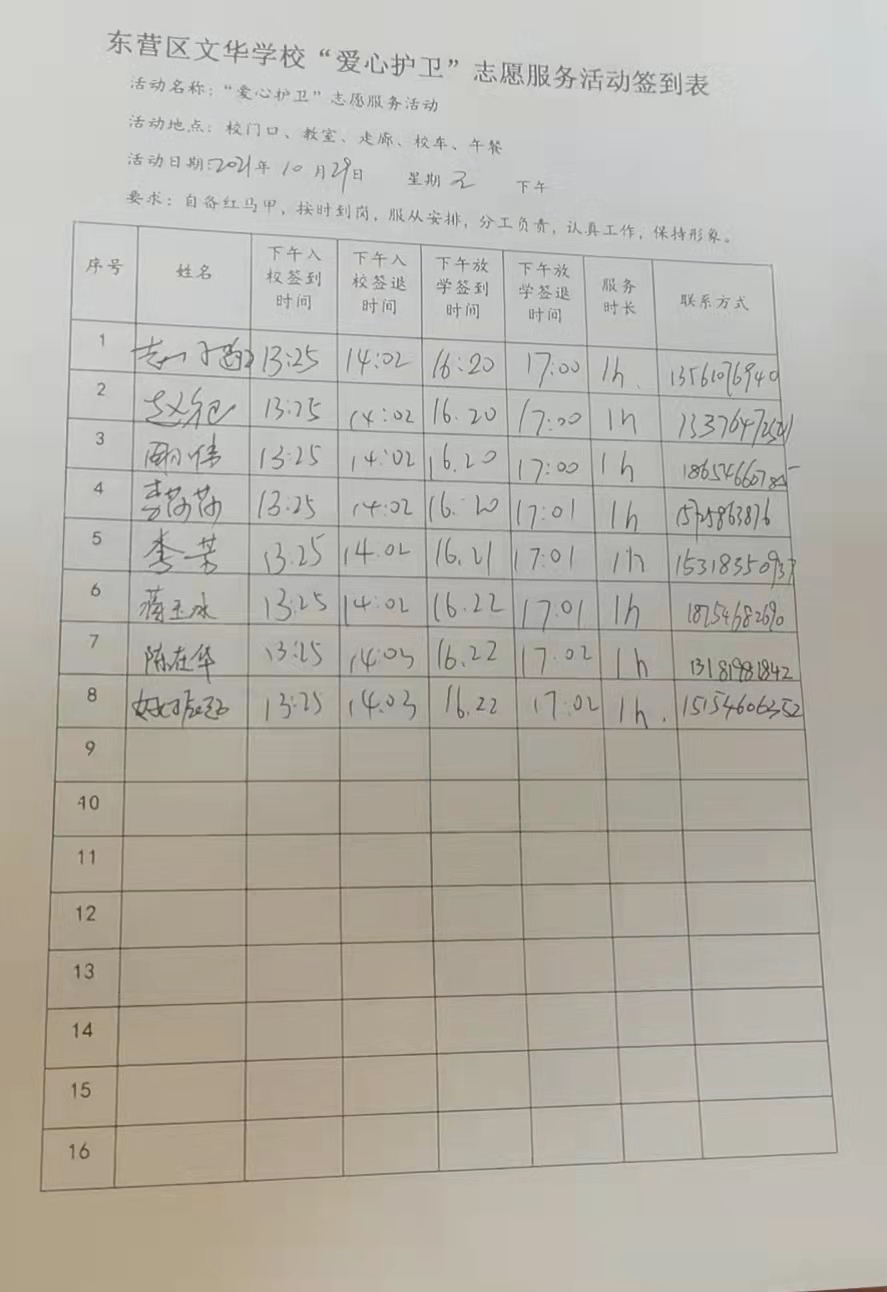 东营区文华学校“爱心护卫”志愿服务活动签到表
活动名称:“爱心护卫”志愿服务活动
活动地点:校门口、教室、走廊、校车、午餐
活动日期:2021年 10月29日 星期五 下午
要求:自备红马甲,按时到岗,服从安排,分工负责,认真工作,保持形象。
序号 姓名 下午入校签到时间 下午入校签退时间 下午放学签到时间 下午放学签退时间 服务时长 联系方式
1 13:25 14:02 16:20 17:00 1h. 13561076940
2 13:25 14:02 16.20 17:00 1h
3 周伟 13:25 14:02 16.20 17:00 1h
4 李莎莎 13:25 14:02 16.20 17:01 1h
5 李荣 13.25 14.02 16.21 17:01 1h 15318350937
6 蒋玉冰 13:25 14:02 16.22 17.01 1h 18254682690
7 陈在华 13:25 14:03 16.22 17.02 1h 13181981842
8 13:25 14.03 16.22 17:02 1h. 15154606352
9
10
11
12
13
14
15
16